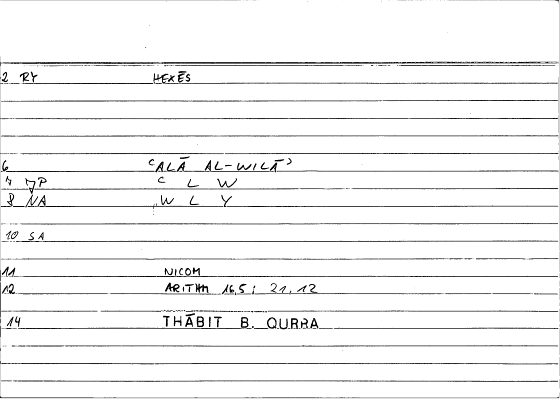 2 RY HEXĒS
6 ʿALĀ AL-WILĀʾ
7 JP C L W
8 NA W L Y
10 SA
11 NICOM
12 ARITHM 16,5; 21,12
14 THĀBIT B. QURRA